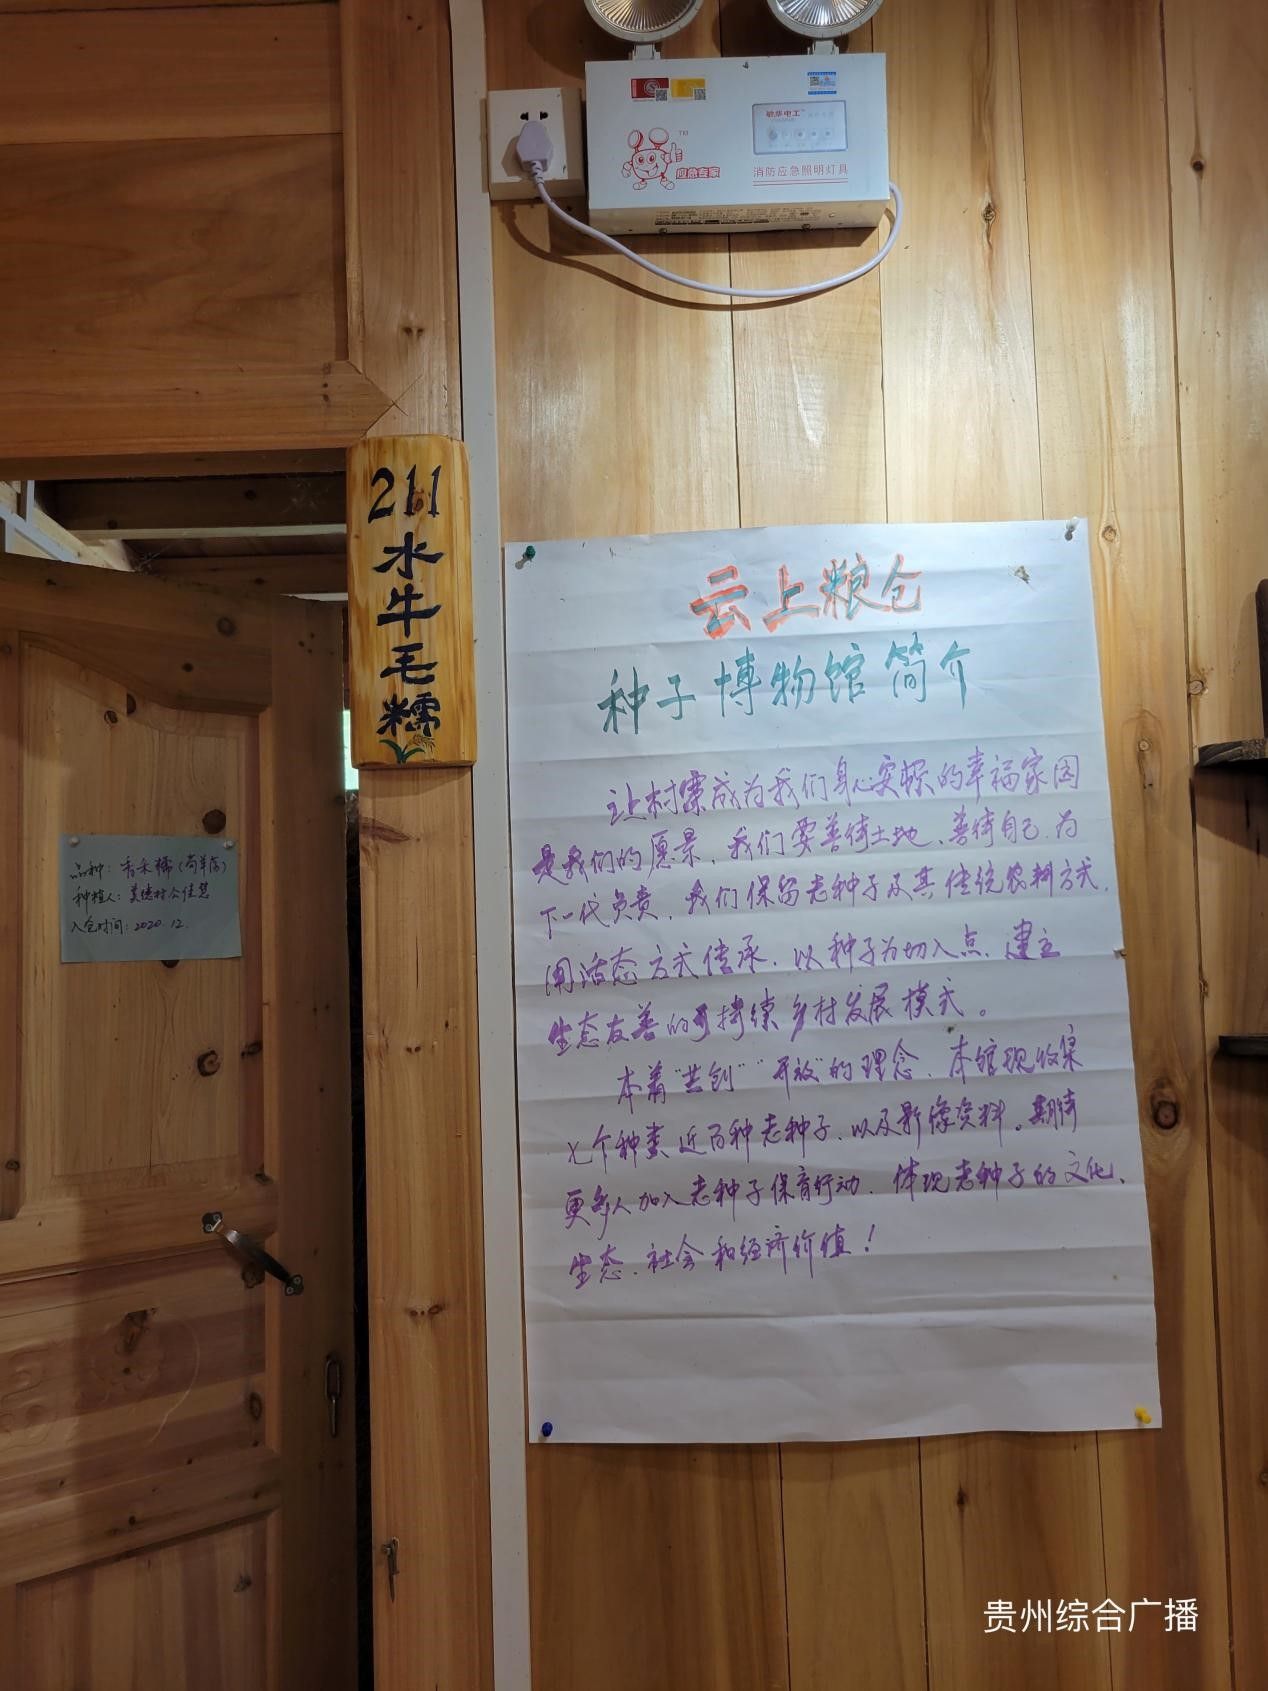 敏华电工
TM
应急专家
消防应急照明灯具
211
水牛毛糯
云上粮仓
种子博物馆简介
让村寨成为我们身心安憩的幸福家园
是我们的愿景。我们要善待土地、善待自己、为
下一代负责。我们保留老种子及其传统农耕方式，
用活态方式传承，以种子为切入点，建立
生态友善的可持续乡村发展模式。
本着“共创”“开放”的理念，本馆现收集
七个种类近百种老种子，以及影像资料。期待
更多人加入老种子保育行动，体现老种子的文化、
生态、社会和经济价值！
品种：香禾糯（苟羊当）
种植人：美德村
入仓时间：2020.12.
贵州综合广播